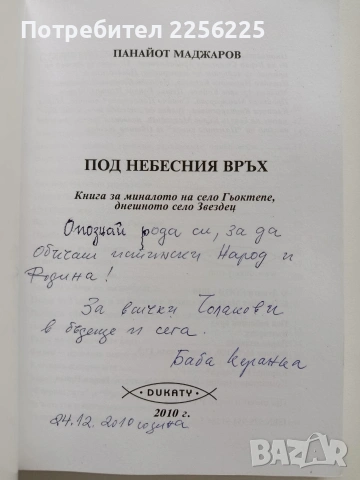 Потребител 2256225
ПАНАЙОТ МАДЖАРОВ
ПОД НЕБЕСНИЯ ВРЪХ
Книга за миналото на село Гьоктепе,
днешното село Звездец
Опознай рода си, за да
обичаш истински Народ и
Родина!
За всички Чолакови
в бъдеще и сега.
Баба
DUKATY
2010 г.
24.12.2010 година
bazar